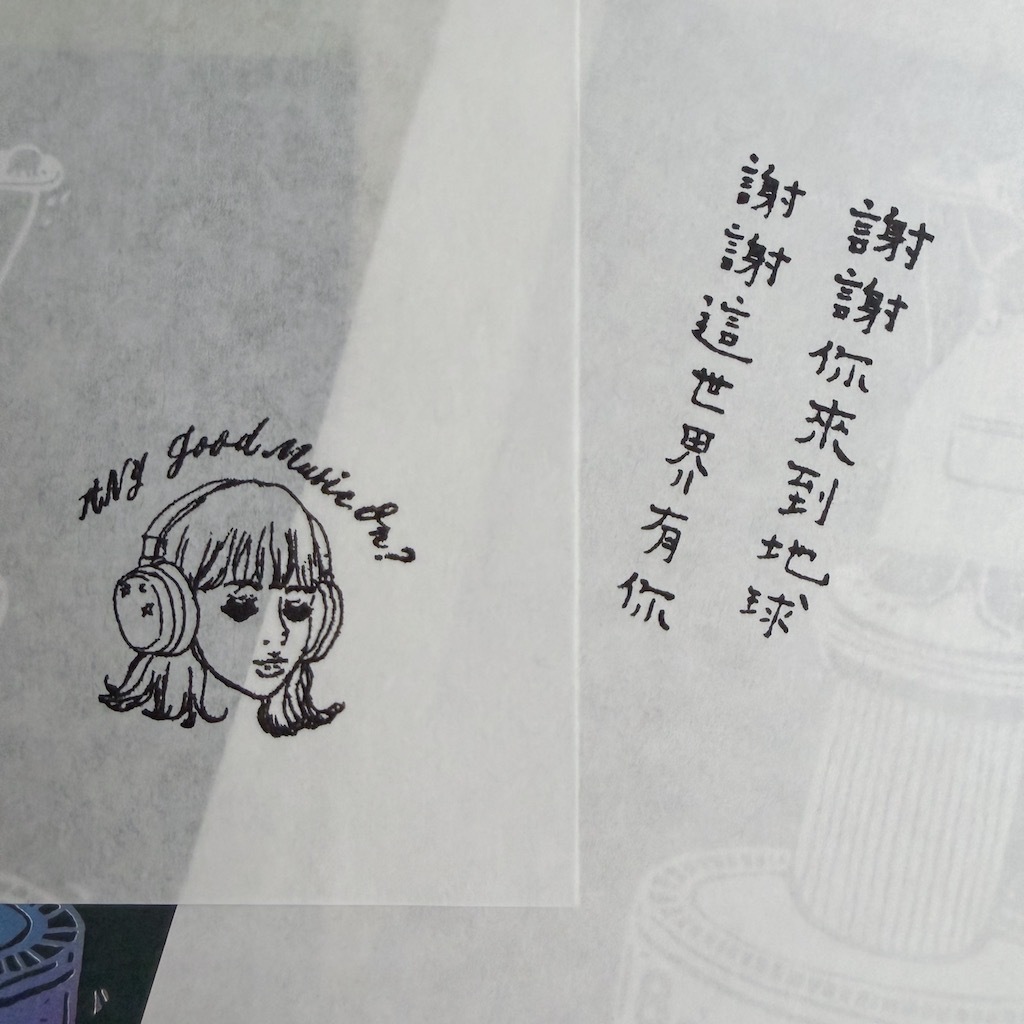 ANY good Music On?
謝謝你來到地球
謝謝這世界有你